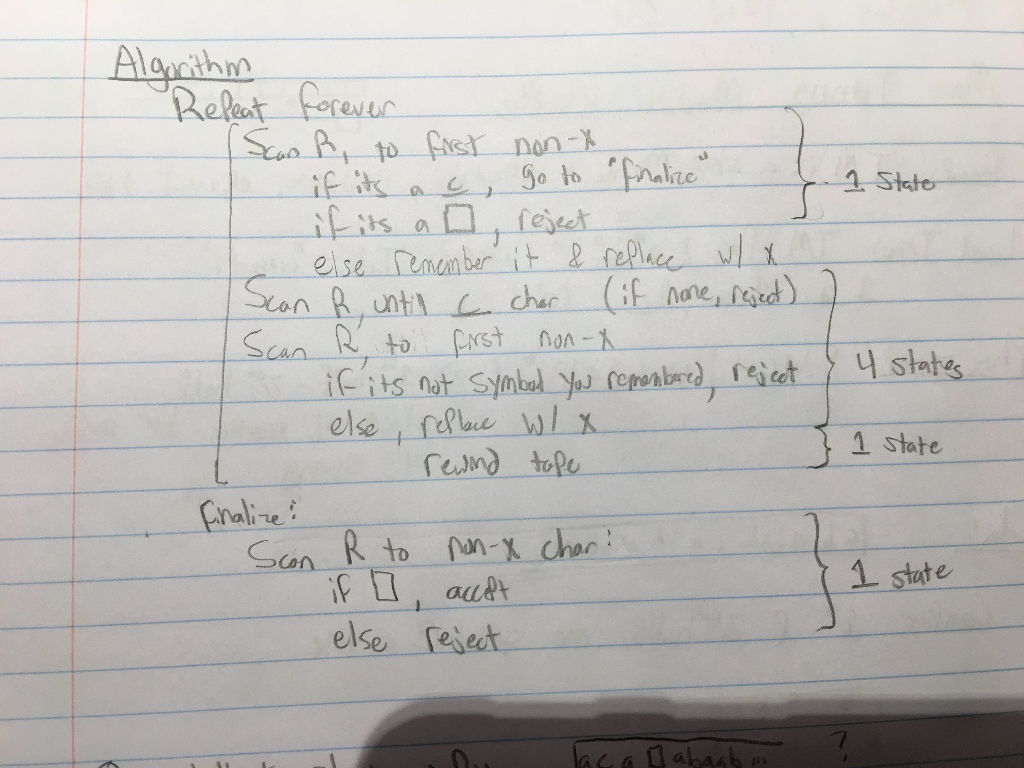 Algorithm
Repeat forever
Scan R, to first non-x
if its a c, go to "finalize"
if its a □, reject
} 1 state
else remember it & replace w/ x
Scan R, until c char (if none, reject)
Scan R, to first non-x
if its not symbol you remembered, reject
} 4 states
else, replace w/ x
rewind tape
} 1 state
finalize:
Scan R to non-x char:
if □, accept
else reject
} 1 state
aca□abaab... ?